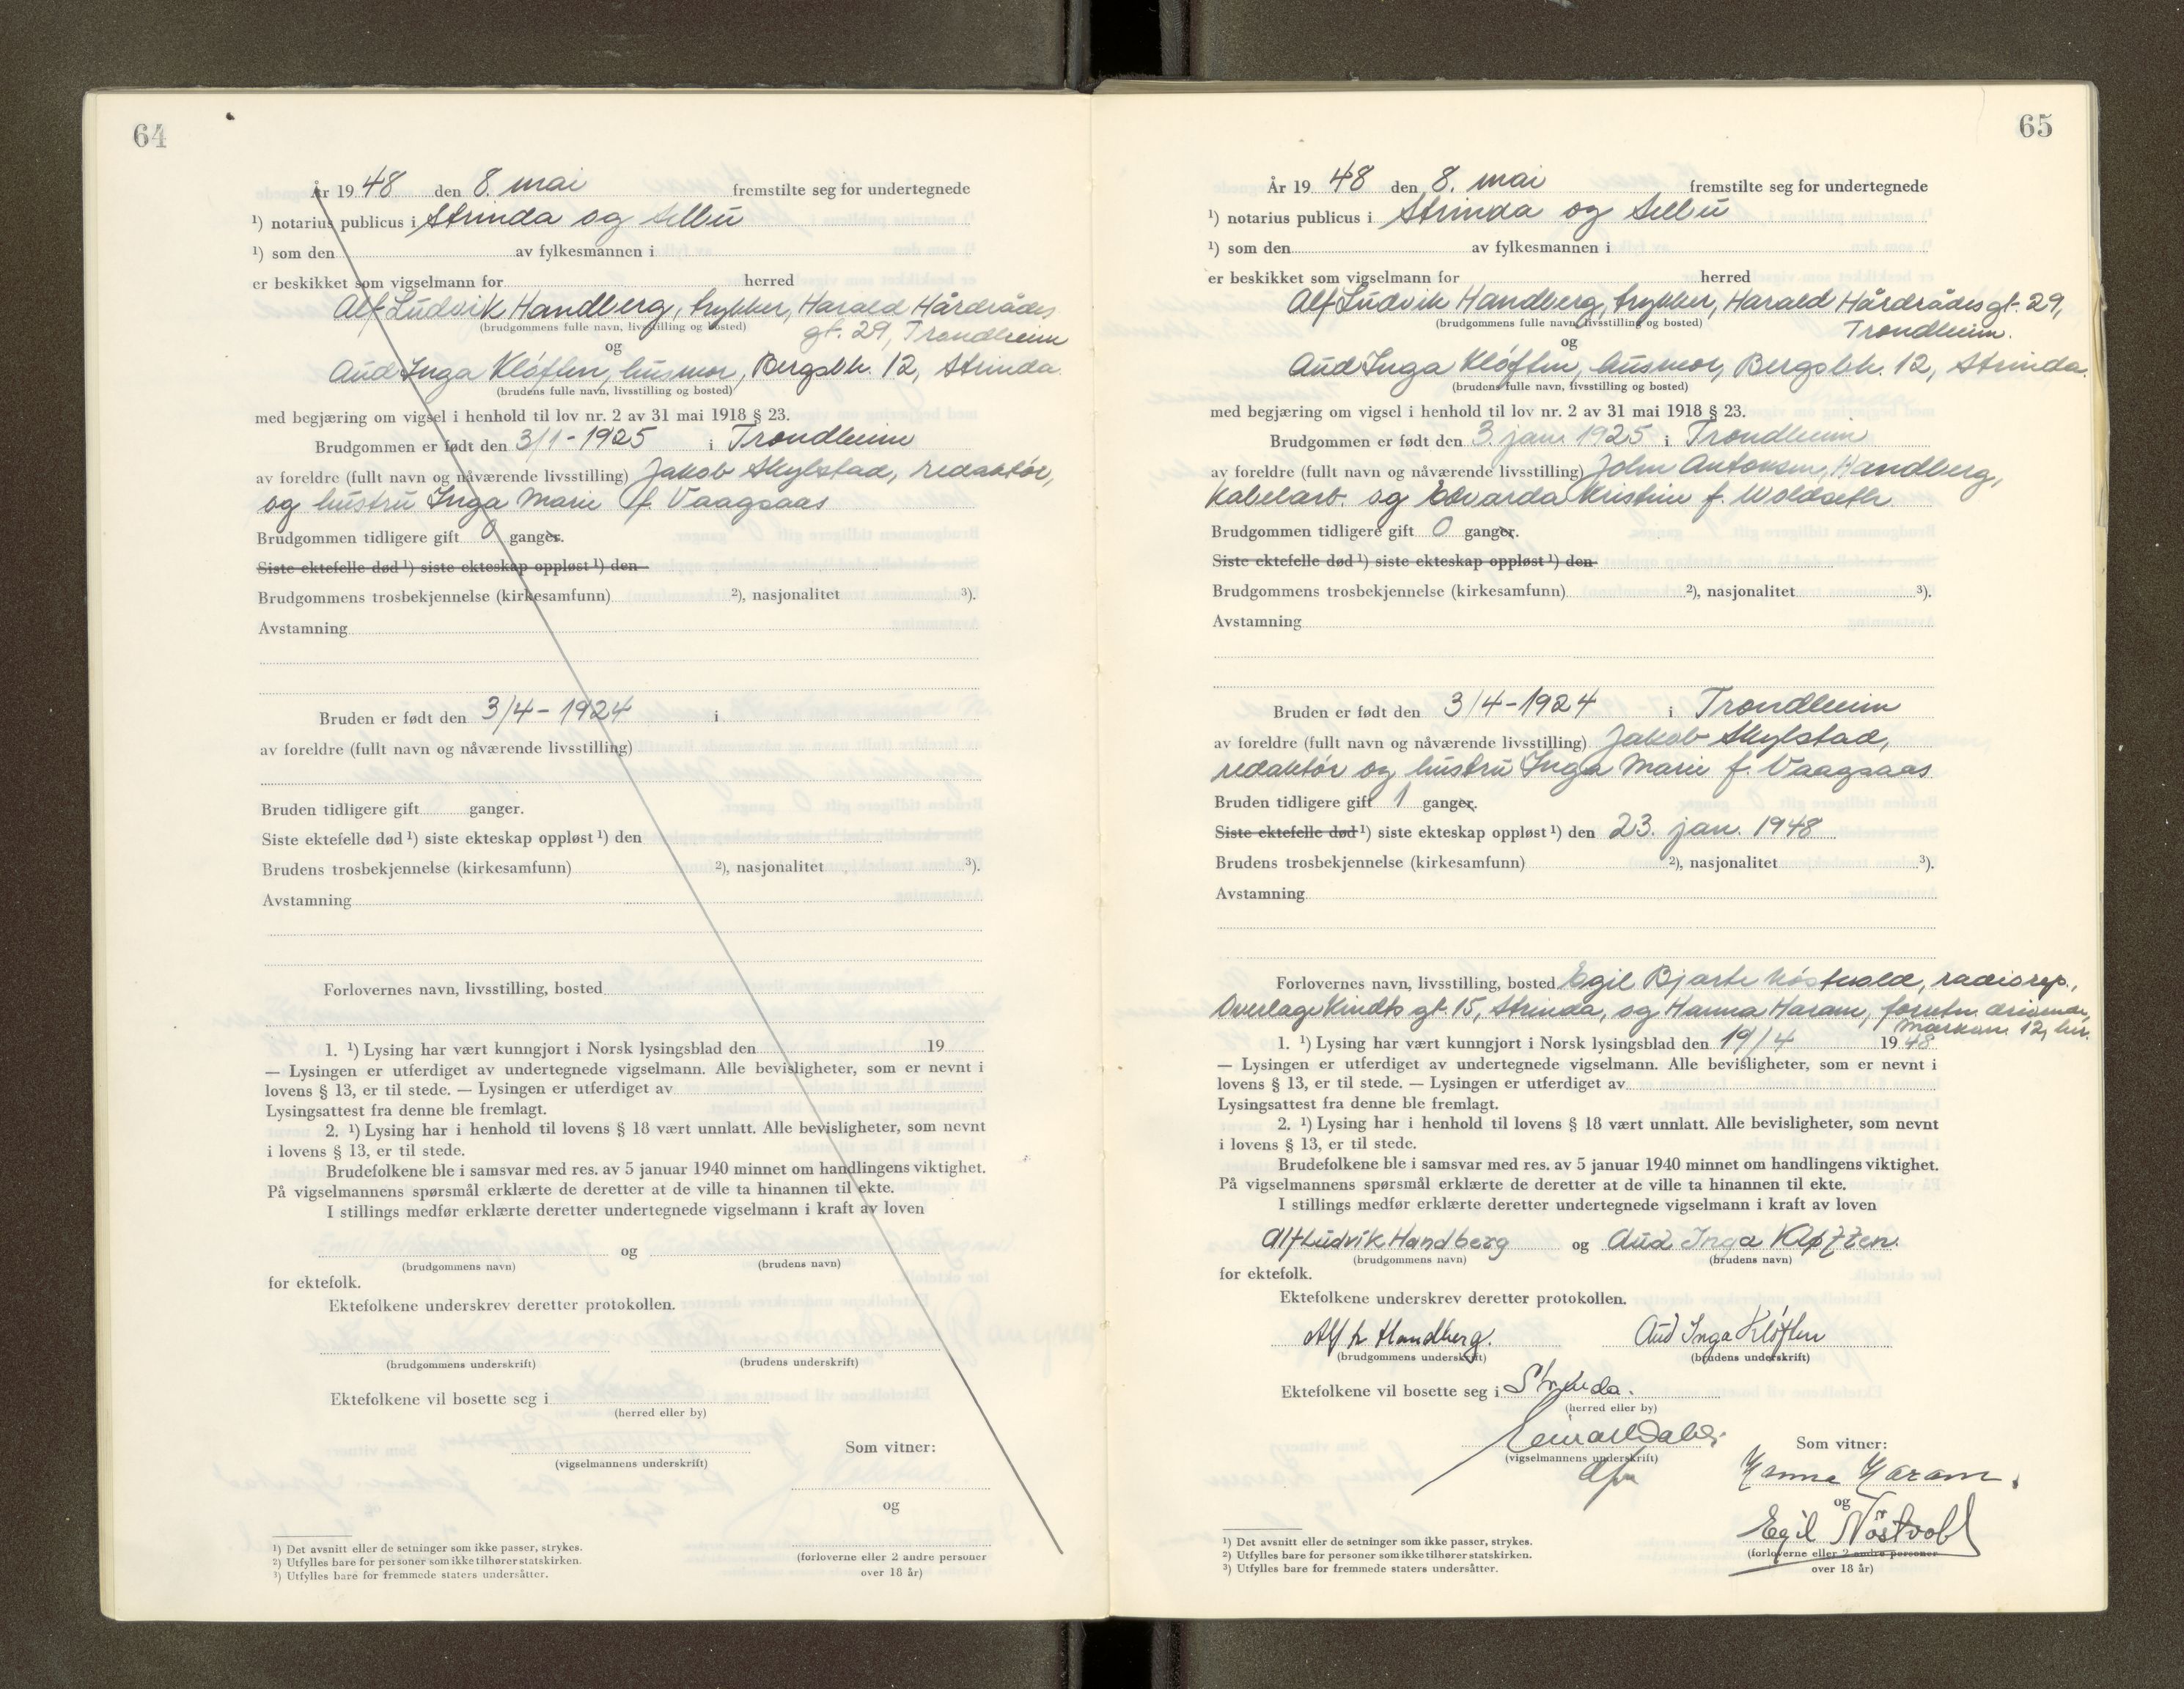 64
År 1948 den 8. mai fremstilte seg for undertegnede
¹) notarius publicus i Strinda og Selbu
¹) som den av fylkesmannen i
er beskikket som vigselmann for herred
Alf Ludvik Handberg, trykker, Harald Hårdrådes
(brudgommens fulle navn, livsstilling og bosted)
gt. 29, Trondheim
og
Aud Inga Kløften, husmor, Bergsbk. 12, Strinda.
(brudens fulle navn, livsstilling og bosted)
med begjæring om vigsel i henhold til lov nr. 2 av 31 mai 1918 § 23.
Brudgommen er født den 3/1-1925 i Trondheim
av foreldre (fullt navn og nåværende livsstilling) Jakob Skylstad, redaktør,
og hustru Inga Marie f. Vaagsaas
Brudgommen tidligere gift 0 ganger.
Siste ektefelle død ¹) siste ekteskap oppløst ¹) den
Brudgommens trosbekjennelse (kirkesamfunn) ²), nasjonalitet ³).
Avstamning
Bruden er født den 3/4-1924 i
av foreldre (fullt navn og nåværende livsstilling)
Bruden tidligere gift ganger.
Siste ektefelle død ¹) siste ekteskap oppløst ¹) den
Brudens trosbekjennelse (kirkesamfunn) ²), nasjonalitet ³).
Avstamning
Forlovernes navn, livsstilling, bosted
1. ¹) Lysing har vært kunngjort i Norsk lysingsblad den 19
— Lysingen er utferdiget av undertegnede vigselmann. Alle bevisligheter, som er nevnt i
lovens § 13, er til stede. — Lysingen er utferdiget av
Lysingsattest fra denne ble fremlagt.
2. ¹) Lysing har i henhold til lovens § 18 vært unnlatt. Alle bevisligheter, som nevnt
i lovens § 13, er til stede.
Brudefolkene ble i samsvar med res. av 5 januar 1940 minnet om handlingens viktighet.
På vigselmannens spørsmål erklærte de deretter at de ville ta hinannen til ekte.
I stillings medfør erklærte deretter undertegnede vigselmann i kraft av loven
og
(brudgommens navn) (brudens navn)
for ektefolk.
Ektefolkene underskrev deretter protokollen.
(brudgommens underskrift) (brudens underskrift)
Ektefolkene vil bosette seg i
(herred eller by)
Som vitner:
(vigselmannens underskrift)
og
(forloverne eller 2 andre personer
over 18 år)
¹) Det avsnitt eller de setninger som ikke passer, strykes.
²) Utfylles bare for personer som ikke tilhører statskirken.
³) Utfylles bare for fremmede staters undersåtter.
65
År 1948 den 8. mai fremstilte seg for undertegnede
¹) notarius publicus i Strinda og Selbu
¹) som den av fylkesmannen i
er beskikket som vigselmann for herred
Alf Ludvik Handberg, trykker, Harald Hårdrådes gt. 29,
(brudgommens fulle navn, livsstilling og bosted)
Trondheim.
og
Aud Inga Kløften, husmor, Bergsbk. 12, Strinda.
(brudens fulle navn, livsstilling og bosted)
med begjæring om vigsel i henhold til lov nr. 2 av 31 mai 1918 § 23.
Brudgommen er født den 3. jan. 1925 i Trondheim
av foreldre (fullt navn og nåværende livsstilling) John Antonsen Handberg,
kabelarb. og Edvarda Kristine f. Woldseth.
Brudgommen tidligere gift 0 ganger.
Siste ektefelle død ¹) siste ekteskap oppløst ¹) den
Brudgommens trosbekjennelse (kirkesamfunn) ²), nasjonalitet ³).
Avstamning
Bruden er født den 3/4-1924 i Trondheim
av foreldre (fullt navn og nåværende livsstilling) Jakob Skylstad,
redaktør og hustru Inga Marie f. Vaagsaas
Bruden tidligere gift 1 ganger.
Siste ektefelle død ¹) siste ekteskap oppløst ¹) den 23. jan. 1948
Brudens trosbekjennelse (kirkesamfunn) ²), nasjonalitet ³).
Avstamning
Forlovernes navn, livsstilling, bosted Egil Bjarte Nøstvold, radiorep.,
Overlege Kindts gt. 15, Strinda, og Hanna Haram,
12,
1. ¹) Lysing har vært kunngjort i Norsk lysingsblad den 19/4 1948
— Lysingen er utferdiget av undertegnede vigselmann. Alle bevisligheter, som er nevnt i
lovens § 13, er til stede. — Lysingen er utferdiget av
Lysingsattest fra denne ble fremlagt.
2. ¹) Lysing har i henhold til lovens § 18 vært unnlatt. Alle bevisligheter, som nevnt
i lovens § 13, er til stede.
Brudefolkene ble i samsvar med res. av 5 januar 1940 minnet om handlingens viktighet.
På vigselmannens spørsmål erklærte de deretter at de ville ta hinannen til ekte.
I stillings medfør erklærte deretter undertegnede vigselmann i kraft av loven
Alf Ludvik Handberg og Aud Inga Kløften.
(brudgommens navn) (brudens navn)
for ektefolk.
Ektefolkene underskrev deretter protokollen.
Alf L Handberg. Aud Inga Kløften
(brudgommens underskrift) (brudens underskrift)
Ektefolkene vil bosette seg i Strinda.
(herred eller by)
Som vitner:
(vigselmannens underskrift)
Hanna Haram.
og
Egil Nöstvold
(forloverne eller 2 andre personer
over 18 år)
¹) Det avsnitt eller de setninger som ikke passer, strykes.
²) Utfylles bare for personer som ikke tilhører statskirken.
³) Utfylles bare for fremmede staters undersåtter.